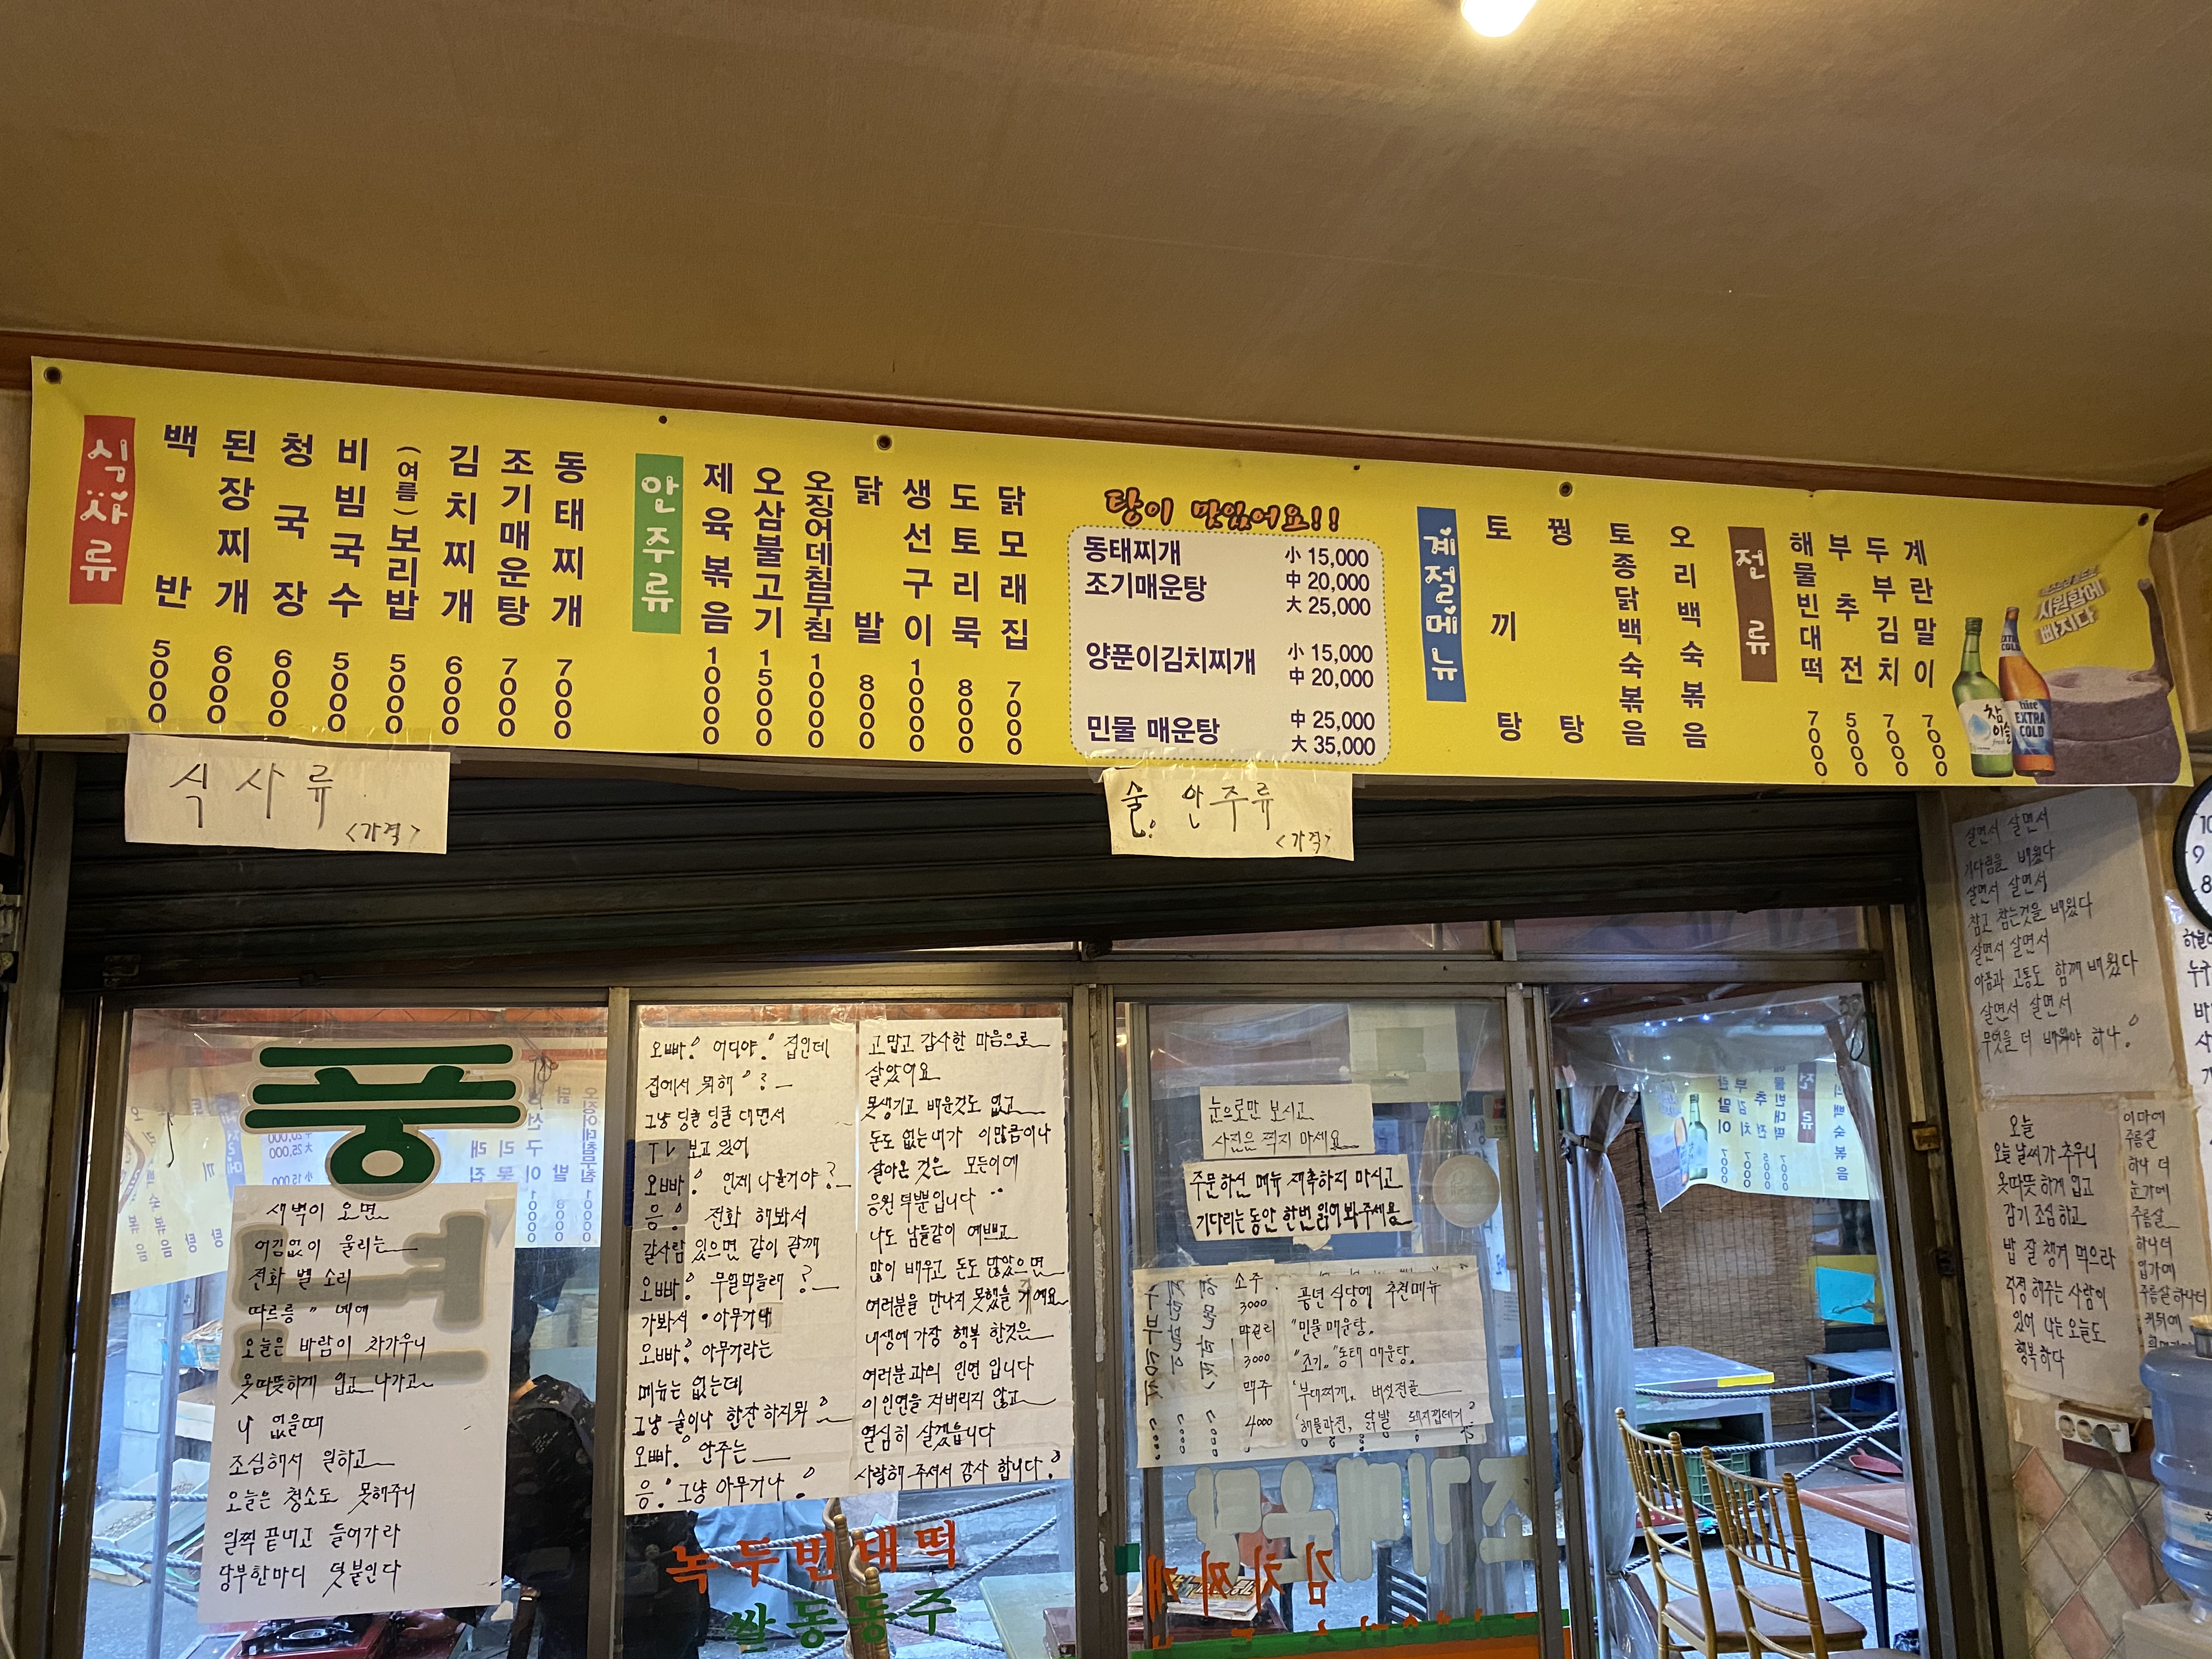 식사류
백반 5000
된장찌개 6000
청국장 6000
비빔국수 5000
(여름)보리밥 5000
김치찌개 6000
조기매운탕 7000
동태찌개 7000
안주류
제육볶음 10000
오삼불고기 15000
오징어데침무침 10000
닭발 8000
생선구이 10000
도토리묵 8000
닭모래집 7000
탕이 맛있어요!!
동태찌개 小 15,000
조기매운탕 中 20,000
大 25,000
양푼이김치찌개 小 15,000
中 20,000
민물 매운탕 中 25,000
大 35,000
계절메뉴
토끼탕
꿩탕
토종닭백숙볶음
오리백숙볶음
전류
해물빈대떡 7000
부추전 5000
두부김치 7000
계란말이 7000
시원함에
빠지다
참이슬
hite
EXTRA
COLD
식사류
<가격>
술. 안주류
<가격>
풍
새벽이 오면
어김없이 울리는
전화 벨 소리
따르릉 〃 네에
오늘은 바람이 차가우니
옷따뜻하게 입고 나가고
나 없을때
조심해서 일하고
오늘은 청소도 못해주니
일찍 끝내고 들어가라
당부한마디 덧붙인다
오빠! 어디야! 집인데
집에서 뭐해 ?
그냥 딩굴 딩굴 대면서
TV 보고 있어
오빠! 언제 나올거야?
응! 전화 해봐서
갈사람 있으면 같이 갈께
오빠! 무얼먹을래 ?
가봐서 아무거나
오빠? 아무거라는
메뉴는 없는데
그냥 술이나 한잔 하지뭐
오빠! 안주는
응! 그냥 아무거나!
고맙고 감사한 마음으로
살았어요
못생기고 배운것도 없고
돈도 없는내가 이만큼이나
살아온 것은 모든이에
응원 덕뿐입니다
나도 남들같이 예쁘고
많이 배우고 돈도 많았으면
여러분을 만나지 못했을 거예요
내생에가장 행복 한것은
여러분과의 인연 입니다
이인연을 저버리지 않고
열심히 살겠습니다
사랑해 주셔서 감사 합니다!
녹두빈대떡
쌀동동주
눈으로만 보시고
사진은 찍지 마세요
주문하신 메뉴 재촉하지 마시고
기다리는동안 한번 읽어봐주세요
소주
3000
막걸리
3000
맥주
4000
풍년 식당에 추천메뉴
"민물 매운탕.
"조기" 동태 매운탕.
부대찌개. 버섯전골
해물파전, 닭발
조기매운탕
김치찌개
살면서 살면서
기다림을 배웠다
살면서 살면서
참고 참는것을 배웠다
살면서 살면서
아픔과 고통도 함께 배웠다
살면서 살면서
무엇을 더 배워야 하나!
오늘
오늘 날씨가 추우니
옷따뜻 하게 입고
감기 조심 하고
밥 잘 챙겨 먹으라
걱정 해주는 사람이
있어 나는 오늘도
행복 하다
이마에
주름살
하나 더
눈가에
주름살
하나더
입가에
주름살하나더
10
9
8